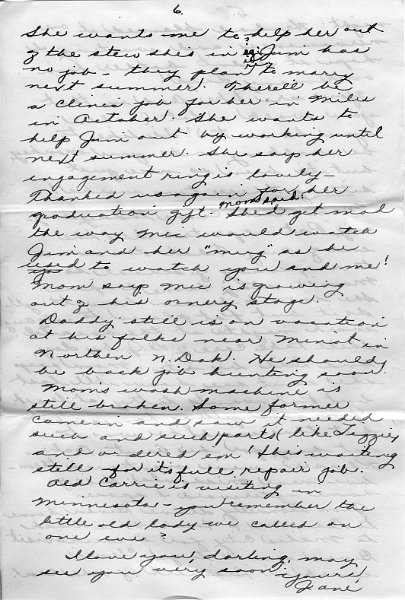 6.
She wants me to help her out
of the stew she's in ? Jim has
no job - they plan to marry
next summer. There'll be
a clinic job for her in Miles
in October. She wants to
help Jim out by working until
next summer. She says her
engagement ring is lovely -
Thanked us again for her
graduation gift. Mom said She'd get mad
the way Mic would watch
Jim and her "mug" as he
used to watch you and me!
Mom says Mic is growing
out of his ornery stage.
Daddy still is on vacation
at his folks near Minot in
Northen N. Dak. He should
be back job hunting soon.
Mom's wash machine is
still broken. Some former
came in and saw it needed
such and such parts (like Lizzie)
and ordered em! She's waiting
still for its free repair job.
Old Carrie is visiting in
Minnesota - you remember the
little old lady we called on
one eve?
I love you, darling, may
see you very soon. Yours,
Jane